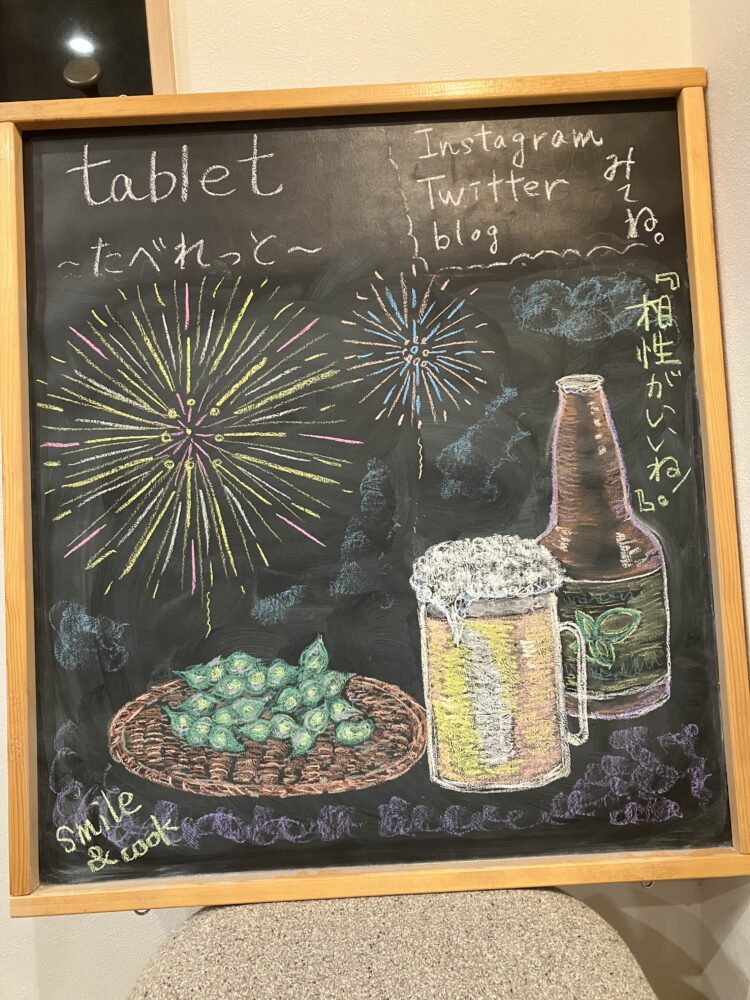 tablet
~たべれっと~
Instagram
Twitter
blog
みてね。
『相性がいいね』。
smile
& cook